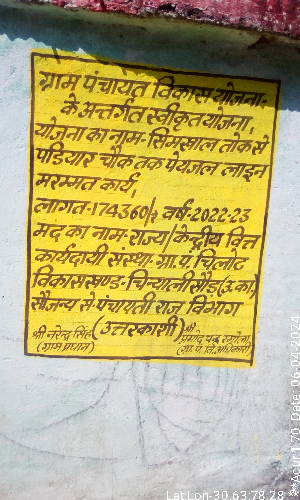 ग्राम पंचायत विकास योजना-
के अन्तर्गत स्वीकृत योजना,
योजना का नाम- सिमरवाल तोक से
पडियार चौक तक पेयजल लाइन
मरम्मत कार्य,
लागत-174360/₹ वर्ष-2022-23
मद का नाम-राज्य/केन्द्रीय वित्त
कार्यदायी संस्था- ग्रा.पं. चिलोट
विकासखण्ड-चिन्यालीसौड़ (उ.का)
सौजन्य से-पंचायती राज विभाग
(उत्तरकाशी)
श्री नरेन्द्र सिंह
(ग्राम प्रधान)
श्री
प्रमोद चन्द्र रमोला
(ग्रा.पं.वि.अधिकारी)
Lat Lon-30.63,78.28
Acur:1.70 Date:06-04-2024